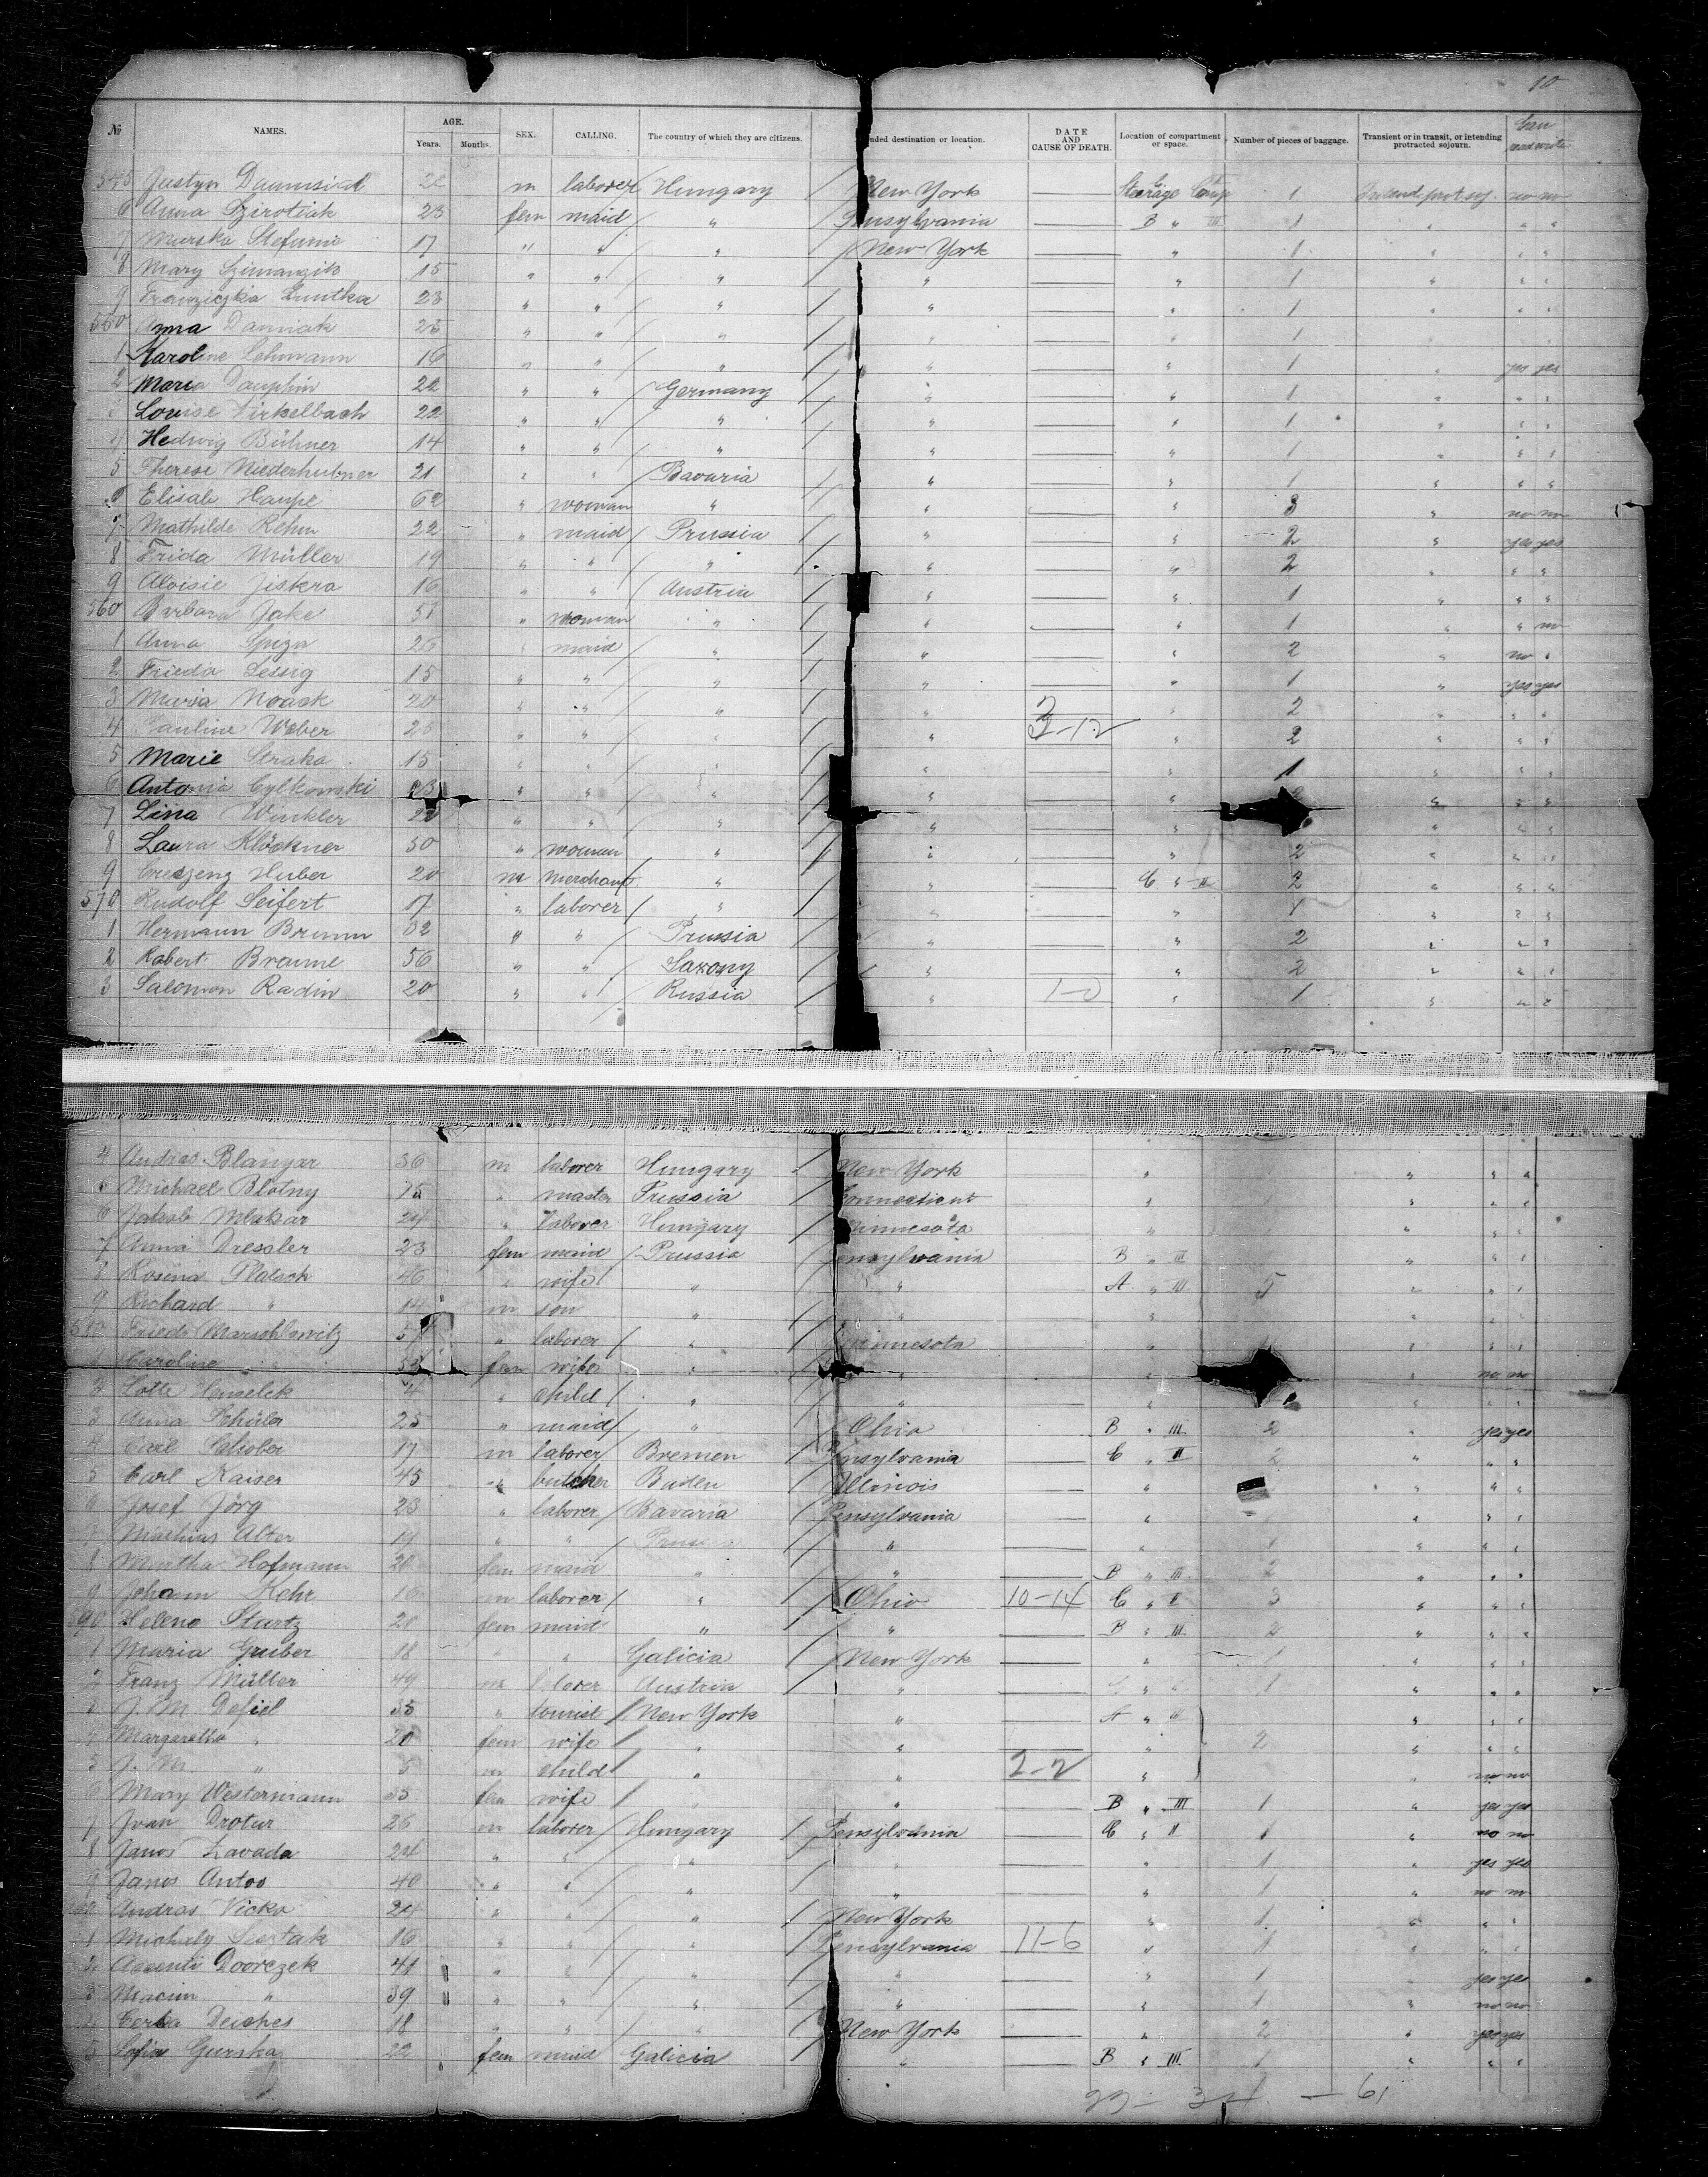 10
№ NAMES. AGE. Years. Months. SEX. CALLING. The country of which they are citizens. nded destination or location. DATE AND CAUSE OF DEATH. Location of compartment or space. Number of pieces of baggage. Transient or in transit, or intending protracted sojourn. Can read write
Justyn m laborer Hungary New York Steerage 1 no no
6 Anna Szirotiak 23 fem maid " Pensylvania B " III 1 " " "
7 Murska Stefanie 17 " " " New York " 1 " " "
8 Mary 15 " " " " " 1 " " "
9 23 " " " " " 1 " " "
550 Anna Damiak 25 " " " " " 1 " " "
1 Karoline Lehmann 16 " " " " " 1 " yes yes
2 Maria Dauphin 22 " " Germany " " 1 " " "
3 Louise Virkelbach 22 " " " " " 1 " " "
4 Hedwig Bühner 14 " " " " " 1 " " "
5 Therese Niederhubner 21 " " Bavaria " " 1 " " "
6 Elisab Haupt 62 " woman " " " 3 " no no
7 Mathilde Rehm 22 " maid Prussia " " 2 " yes yes
8 Frida Müller 19 " " " " " 2 " " "
9 Aloisie Jiskra 16 " " Austria " " 1 " " "
560 Barbara Jake 51 " woman " " " 1 " " no
1 Anna Spiza 26 " maid " " " 2 " no "
2 Frieda Lessig 15 " " " " " 1 " yes yes
3 Maria Noack 20 " " " " " 2 " " "
4 Pauline Weber 25 " " " " 3-12 " 2 " " "
5 Marie Straka 15 " " " " " 1 " " "
6 Antonia Cylkowski 23 " " " " " " " "
7 Lina Winkler 22 " " " " " " " "
8 Laura Klöckner 50 " woman " " " 2 " " "
9 Creszenz Huber 20 m merchant " " C " II 2 " " "
570 Rudolf Seifert 17 " laborer " " " 1 " " "
1 Hermann Brunn 32 " " Prussia " " 2 " " "
2 Robert Braune 56 " " Saxony " " 2 " " "
3 Salomon Radin 20 " " Russia " 1-0 " 1 " " "
4 Andras Blanyar 36 m laborer Hungary New York " " " "
5 Michael Blotny 15 " master Prussia Connecticut " " " "
6 Jakob Mlakar 24 " laborer Hungary Minnesota " " " "
7 Anna Dressler 23 fem maid Prussia Pensylvania B " III " " "
8 Rosina Platsch 46 " wife " " A " III 5 " " "
9 Richard " 14 m son " " " " " "
580 Friedr Marschlowitz 57 " laborer " Minnesota " " " "
1 Caroline " fem wife " " " " no no
2 Lotte Henselek 4 " child " " " " " "
3 Anna Schüler 25 " maid " Ohio B " III 2 " yes yes
4 Carl Schober 17 m laborer Bremen Pensylvania C " II 2 " " "
5 Carl Kaiser 45 " butcher Baden Illinois " " " "
6 Josef Jörg 23 " laborer Bavaria Pensylvania " " " "
7 Mathias Alter 19 " " Prussia " " 1 " " "
8 Martha Hofmann 20 fem maid " " B " III 2 " " "
9 Johann Kehr 16 m laborer " Ohio 10-14 C " II 3 " " "
590 Helene Startz 20 fem maid " " B " III 2 " " "
1 Maria Gruber 18 " " Galicia New York " 1 " " "
2 Franz Müller 49 m laborer Austria " 1 " " "
3 J. M. Defiel 35 " tourist New York " A " III " " "
4 Margaretha " 20 fem wife " " " 2 " " "
5 J. M. " 5 m child " " 2-2 " " no no
6 Mary Westermann 35 fem wife " " B " III 1 " yes yes
7 Ivan Drotar 26 m laborer Hungary Pensylvania C " II 1 " no no
8 Janos Zavada 24 " " " " " 1 " yes yes
9 Janos Antos 40 " " " " " 1 " no no
Andras Vicko 24 " " " New York " 1 " " "
1 Michaly Sestak 16 " " " Pensylvania 11-6 " 1 " " "
2 Dvorczek 41 " " " " " 1 " yes yes
3 Macim " 39 " " " " " 1 " no no
4 Deiches 18 " " " New York " 2 " yes yes
5 Sofia Gurska 22 fem maid Galicia " B " III 1 " " "
61